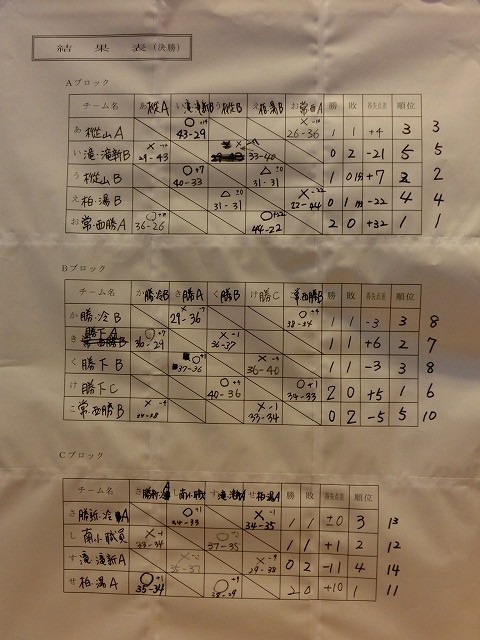 結果表(決勝)
Aブロック
チーム名 あ 樅A い 滝・滝新B う 樅B え 柏・湯B お 常・西A 勝 敗 得失点差 順位
あ 樅山A ○+14 43-29 ×-10 26-36 1 1 +4 3 3
い 滝・滝新B ×-14 29-43 33-40 0 2 -21 5 5
う 樅山B ○+7 40-33 △±0 31-31 1 0 +7 2 2
え 柏・湯B △±0 31-31 ×-22 22-44 0 1 -22 4 4
お 常・西勝A ○+10 36-26 ○+22 44-22 2 0 +32 1 1
Bブロック
チーム名 か 勝・冷B き 勝A く 勝B け 勝C こ 常西勝B 勝 敗 得失点差 順位
か 勝・冷B ×-7 29-36 ○+4 38-34 1 1 -3 3 8
き 勝下A ○+7 36-29 ×-1 36-37 1 1 +6 2 7
く 勝下B ○+1 37-36 ×-4 36-40 1 1 -3 3 8
け 勝下C ○+4 40-36 ○+1 34-33 2 0 +5 1 6
こ 常・西勝B ×-4 34-38 ×-1 33-34 0 2 -5 5 10
Cブロック
チーム名 さ し 南小職 す 滝・滝新A せ 柏湯A 勝 敗 得失点差 順位
さ 勝新・冷A ○+1 34-33 ×-1 34-35 1 1 ±0 3 13
し 南小職員 ×-1 33-34 ○+2 37-35 1 1 +1 2 12
す 滝・滝新A ×-2 35-37 ×-9 29-38 0 2 -11 4 14
せ 柏・湯A ○+1 35-34 ○+9 38-29 2 0 +10 1 11